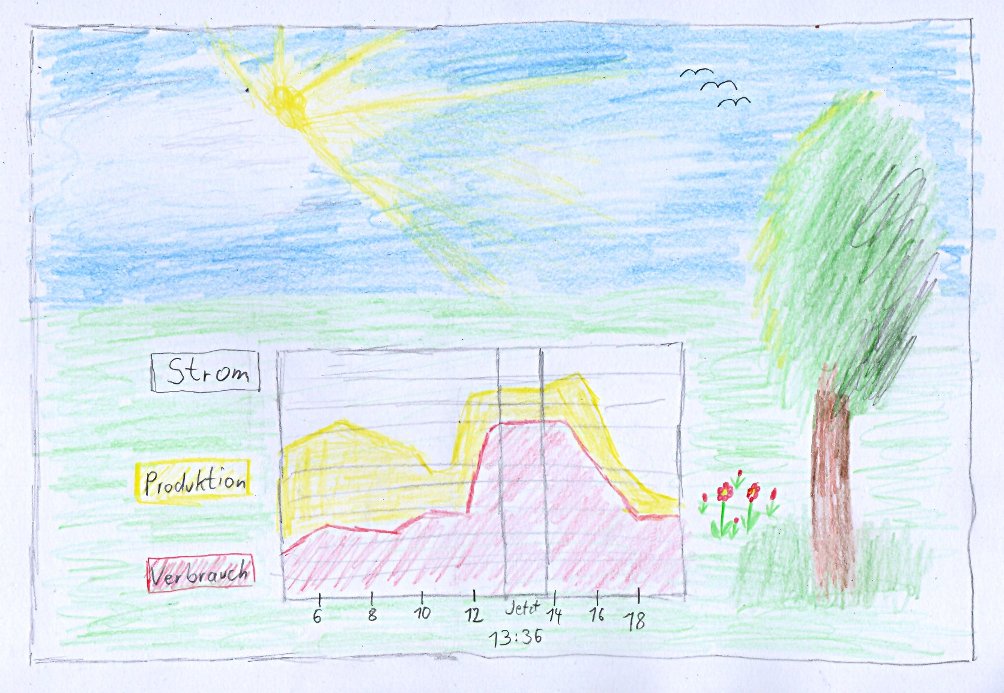 Strom
Produktion
Verbrauch
6 8 10 12 Jetzt 14 16 18
13:36